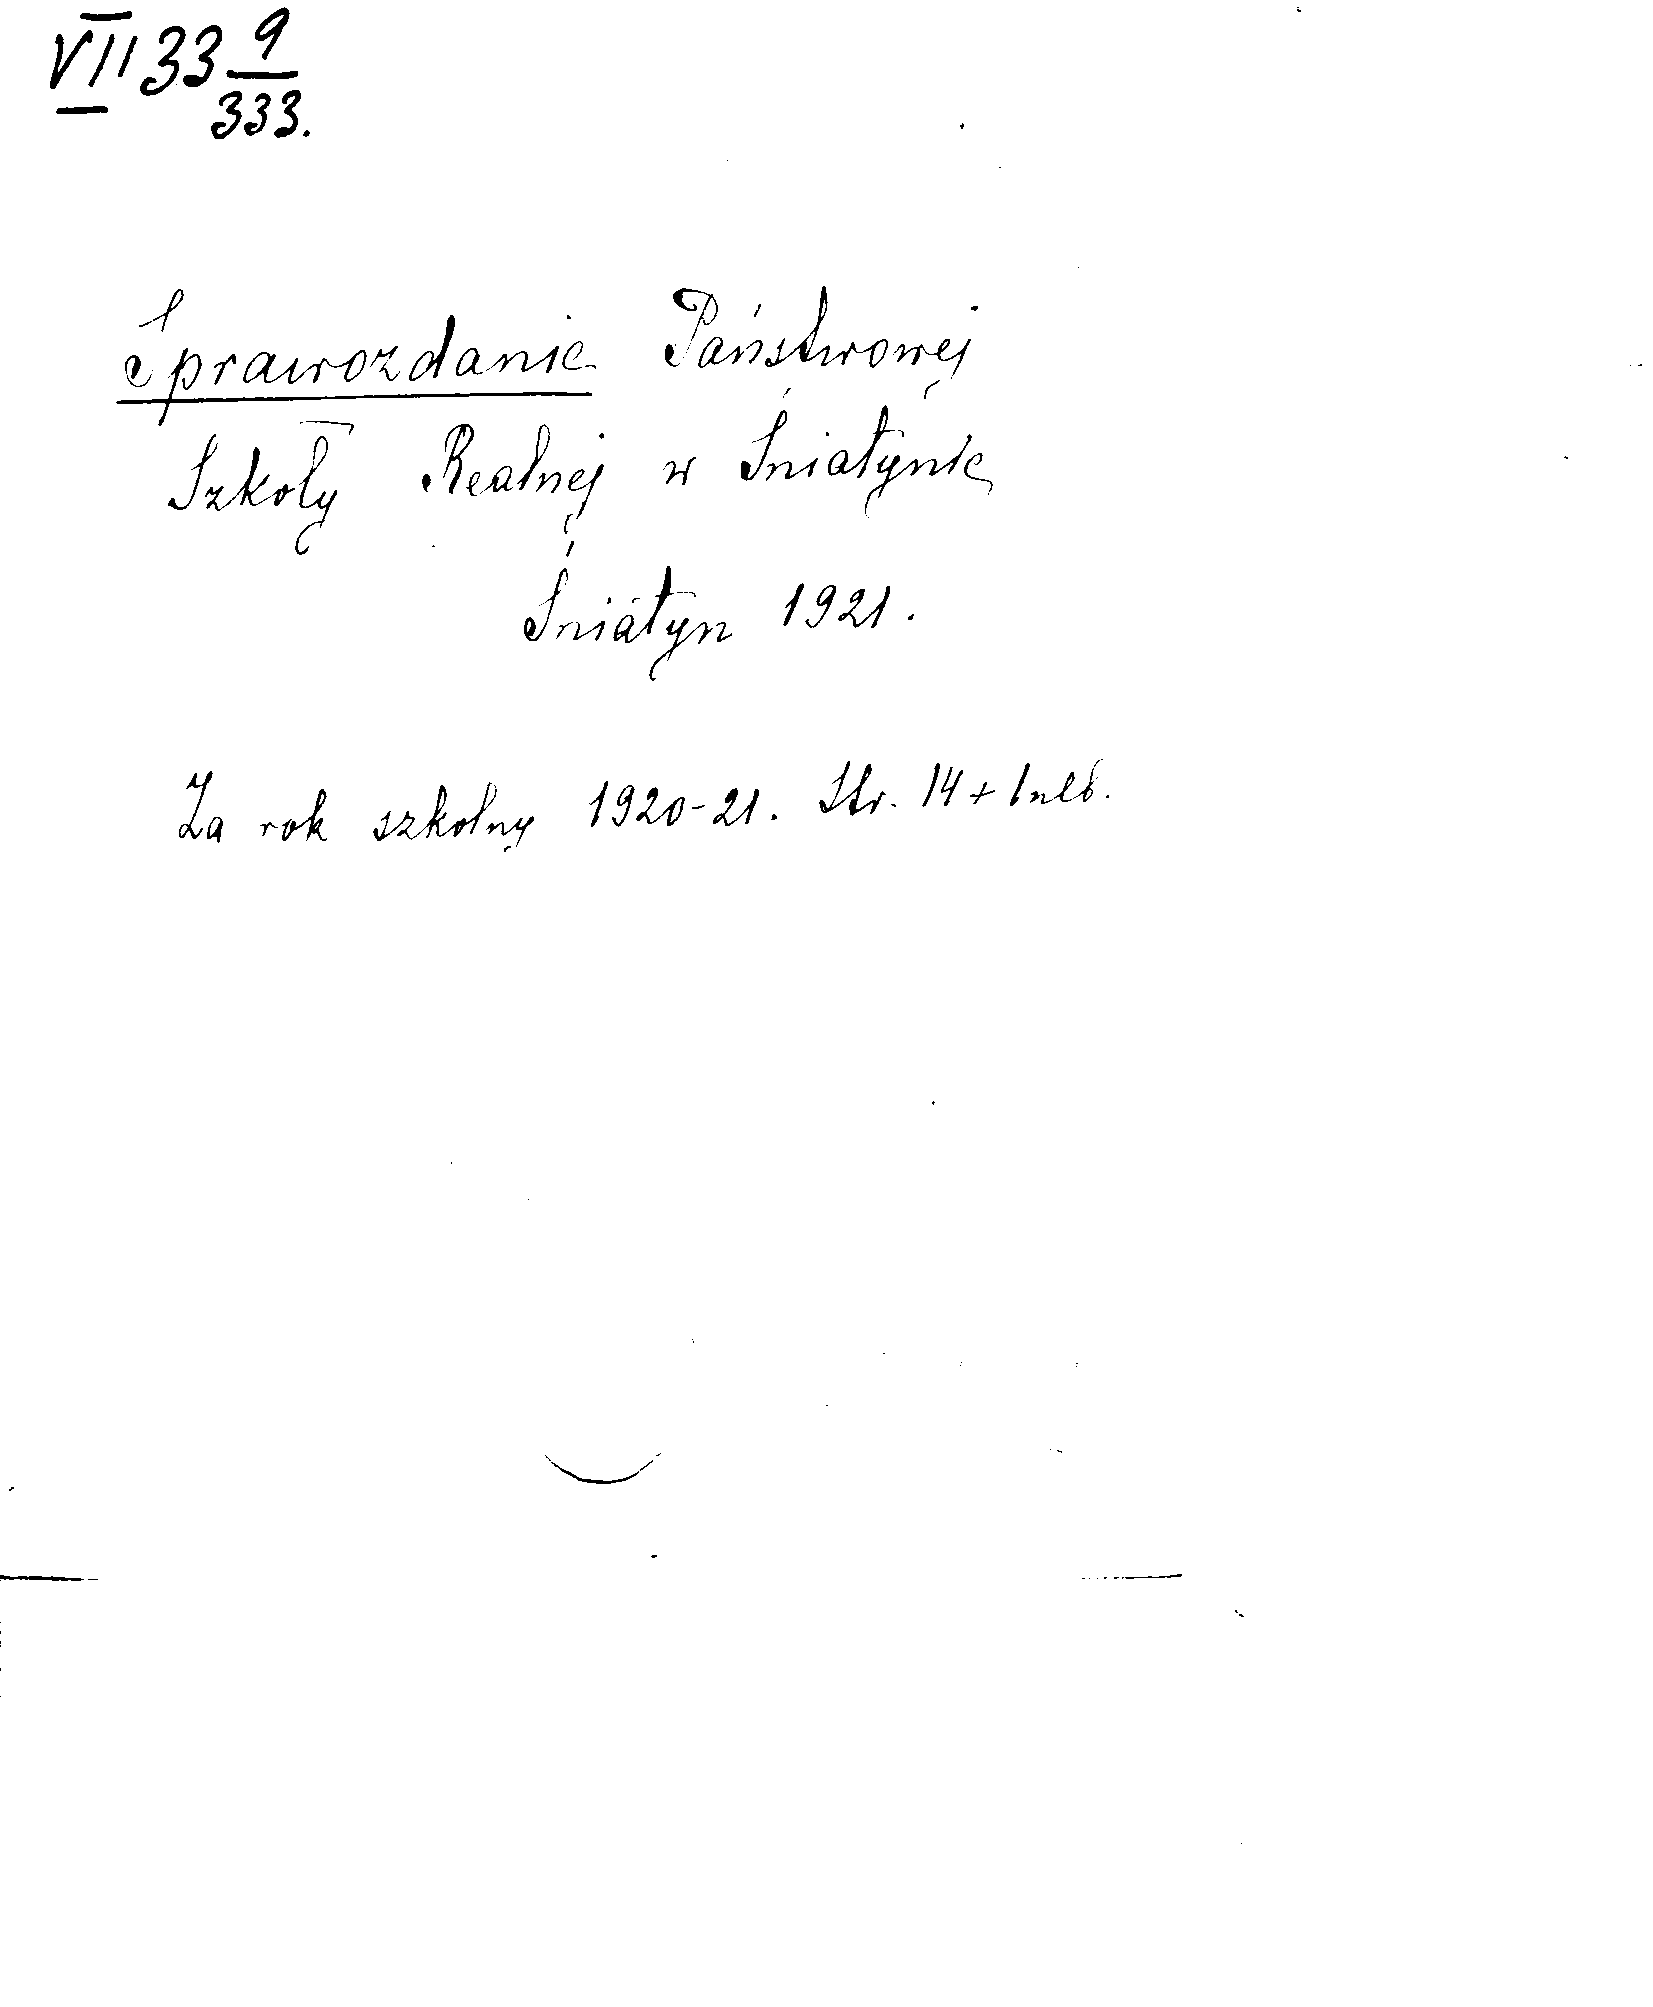 VII 33 9/333.
Sprawozdanie Państwowej
Szkoły Realnej w Śniatynie
Śniatyn 1921.
Za rok szkolny 1920-21. Str. 14 + 1 nlb.